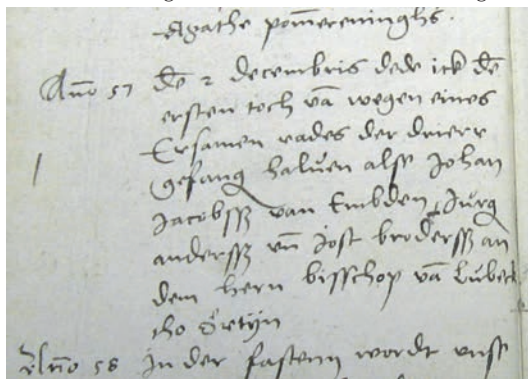 Agathe pom̄ereninghs.
Año 57 dē 2 decembris dede ick dē
ersten toch vā wegen eines
Ersamen rades der drierr
gefang halúen alse Johan
Jacobsß van Embden, Júrg
andersß vn̄ Jost brodersß an
dem hern bisschop vā Lúbeck
tho Ŏrtijn
Año 58 In der fastenn wordt unse